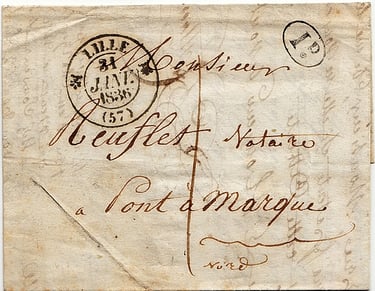 LILLE
21
JANV.
1836
(57)
P.
Monsieur
Reuflet Notaire
a Pont à Marque
1
Nord